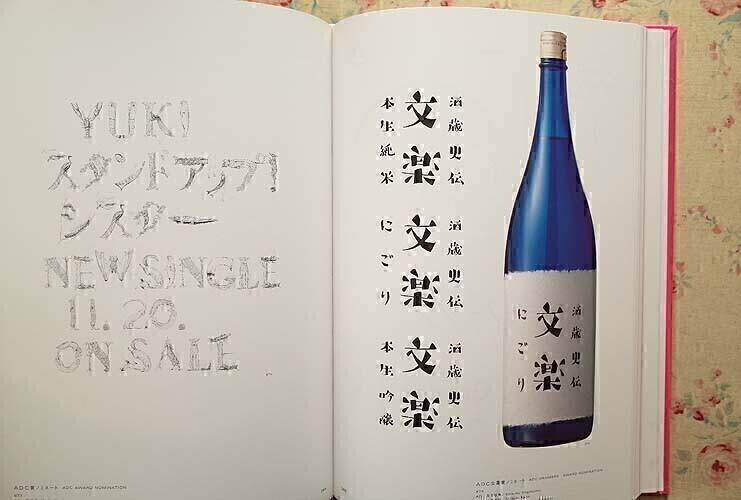 YUKI
スタンドアップ!
シスター
NEW SINGLE
11. 20.
ON SALE
ADC賞ノミネート ADC AWARD NOMINATION
酒蔵史伝
文楽
本生純米
酒蔵史伝
文楽
にごり
酒蔵史伝
文楽
本生吟醸
酒蔵史伝
文楽
にごり